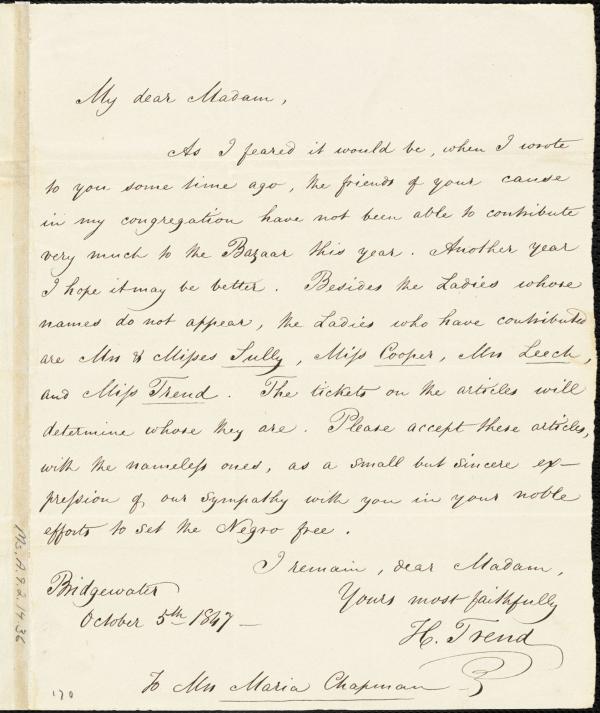 My dear Madam,
As I feared it would be, when I wrote
to you some time ago, the friends of your cause
in my congregation have not been able to contribute
very much to the Bazaar this year. Another year
I hope it may be better. Besides the Ladies whose
names do not appear, the Ladies who have contributed
are Mrs & Misses Sully, Miss Cooper, Mrs Leech,
and Miss Trend. The tickets on the articles will
determine whose they are. Please accept these articles,
with the nameless ones, as a small but sincere ex-
pression of our sympathy with you in your noble
efforts to set the Negro free.
I remain, dear Madam,
Yours most faithfully
H. Trend
Bridgewater
October 5th 1847 —
To Mrs Maria Chapman
Ms.A.9.2.14.36
170